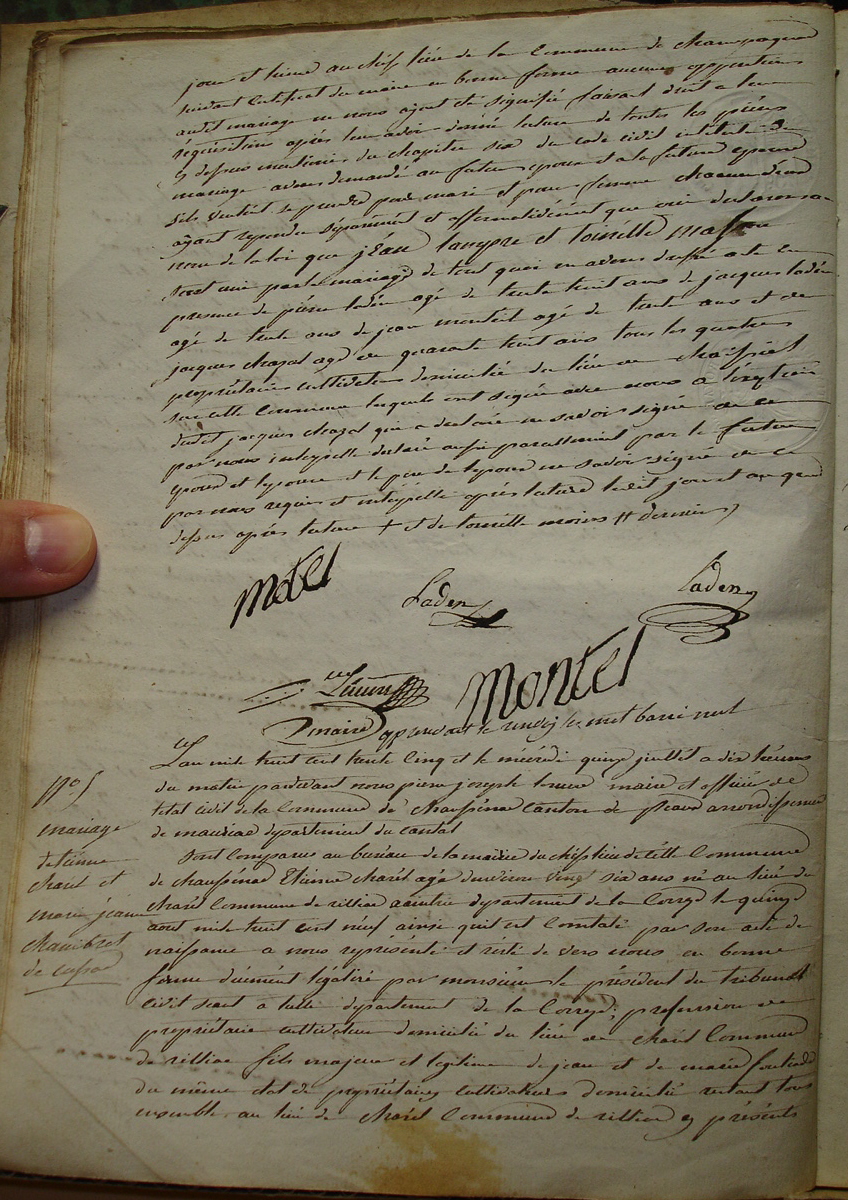 jour et heure au chef lieu de la Commune de champagnac
suivant Certificat du maire en bonne forme aucune opposition
audit mariage ne nous ayant été signifié faisant droit a leur
réquisition après leur avoir donné lecture de toutes les pièces
cy dessus mentionées du chapitre six du code civil intitulé du
mariage avons demandé au futur epoux et a la future epouse
sils veulent se prendre pour mari et pour femme chacun deux
ayant repondu séparément et affirmativement que oui declarons au
nom de la loi que jéan et toinette
sont unis par le mariage de tout quoi en avons dressé acte en
presence de pierre ladén agé de trente huit ans de jacques ladén
agé de trente ans de jean monteil agé de trente ans et de
jacques chazal agé de quarante huit ans tous les quatre
propriétaires cultivateurs domicilié du lieu de
sur cette Commune lesquels ont signé avec nous a lexception
dudit jacques chazal qui a declaré ne savoir signé de ce
par nous interpellé declaré aussi pareillement par le future
epoux et lepouse et le pere de lepoux ne savoir signé de ce
par nous requis et interpellé après lecture ledit jour et an que
dessus après lecture + et de toinette moins # dernier
Motel Laden Laden
Montel
maire approuvant le renvoy
Lan mil huit cent trente cinq et le mécredi quinze juillet a dix heures
du matin pardevant nous pierre joseph maire et officier de
letat civil de la Commune de chaussénac Canton de pleaux arrondissement
de mauriac departement du cantal
Sont Comparus au bureau de la mairie du chef lieu de cette Commune
de chaussénac Etienne charél agé denviron vingt six ans né au lieu de
charél Commune de rilliac departement de la Corrèze le quinze
aout mil huit cent neuf ainsi quil est Constaté par son acte de
naissance a nous représenté et resté de vers nous en bonne
forme duement légalizé par monsieur le président du tribunal
civil séant a tulle departement de la Corrèze profession de
propriétaire cultivateur domicilié du lieu de charél Commune
de rilliac fils majeur et legitime de jean et de marie
du même etat de propriétaires cultivateurs domicilié restant tous
ensemble au lieu de charél Commune de rilliac cy présents
No 5
mariage
detienne
charél et
marie jeanne
chambret
de cussac